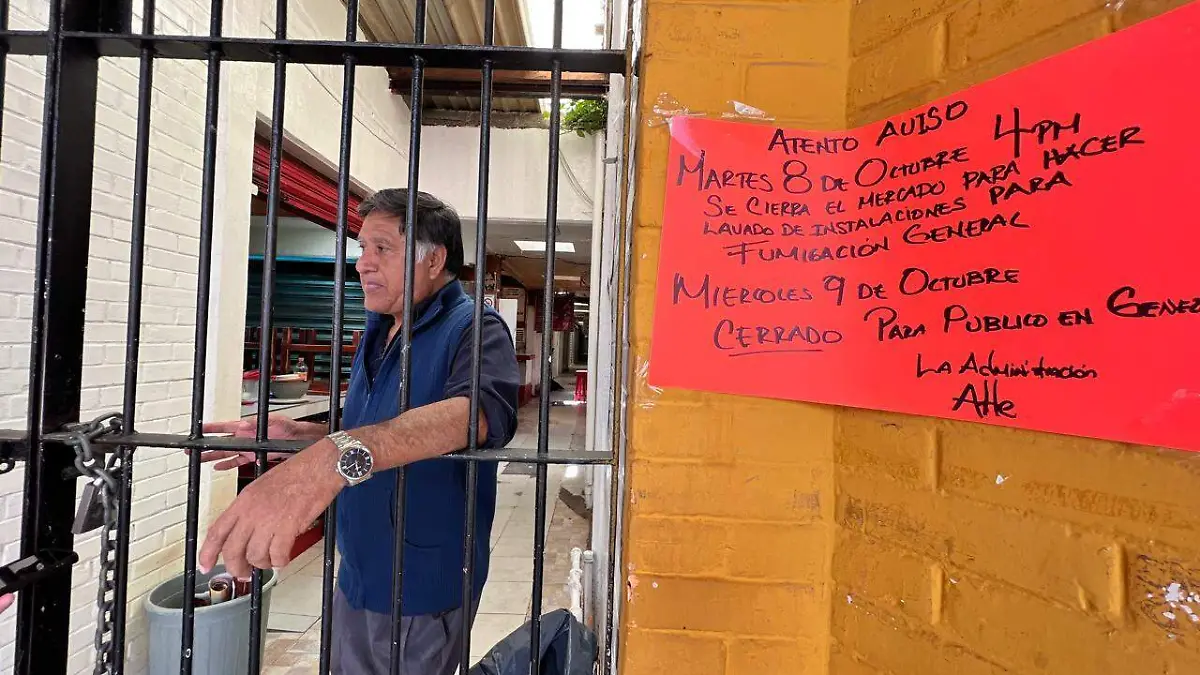 ATENTO AVISO
MARTES 8 DE OCTUBRE 4PM
SE CIERRA EL MERCADO PARA HACER
LAVADO DE INSTALACIONES PARA
FUMIGACIÓN GENERAL
MIERCOLES 9 DE OCTUBRE
CERRADO PARA PUBLICO EN GENE
LA ADMINISTRACIÓN
Atte